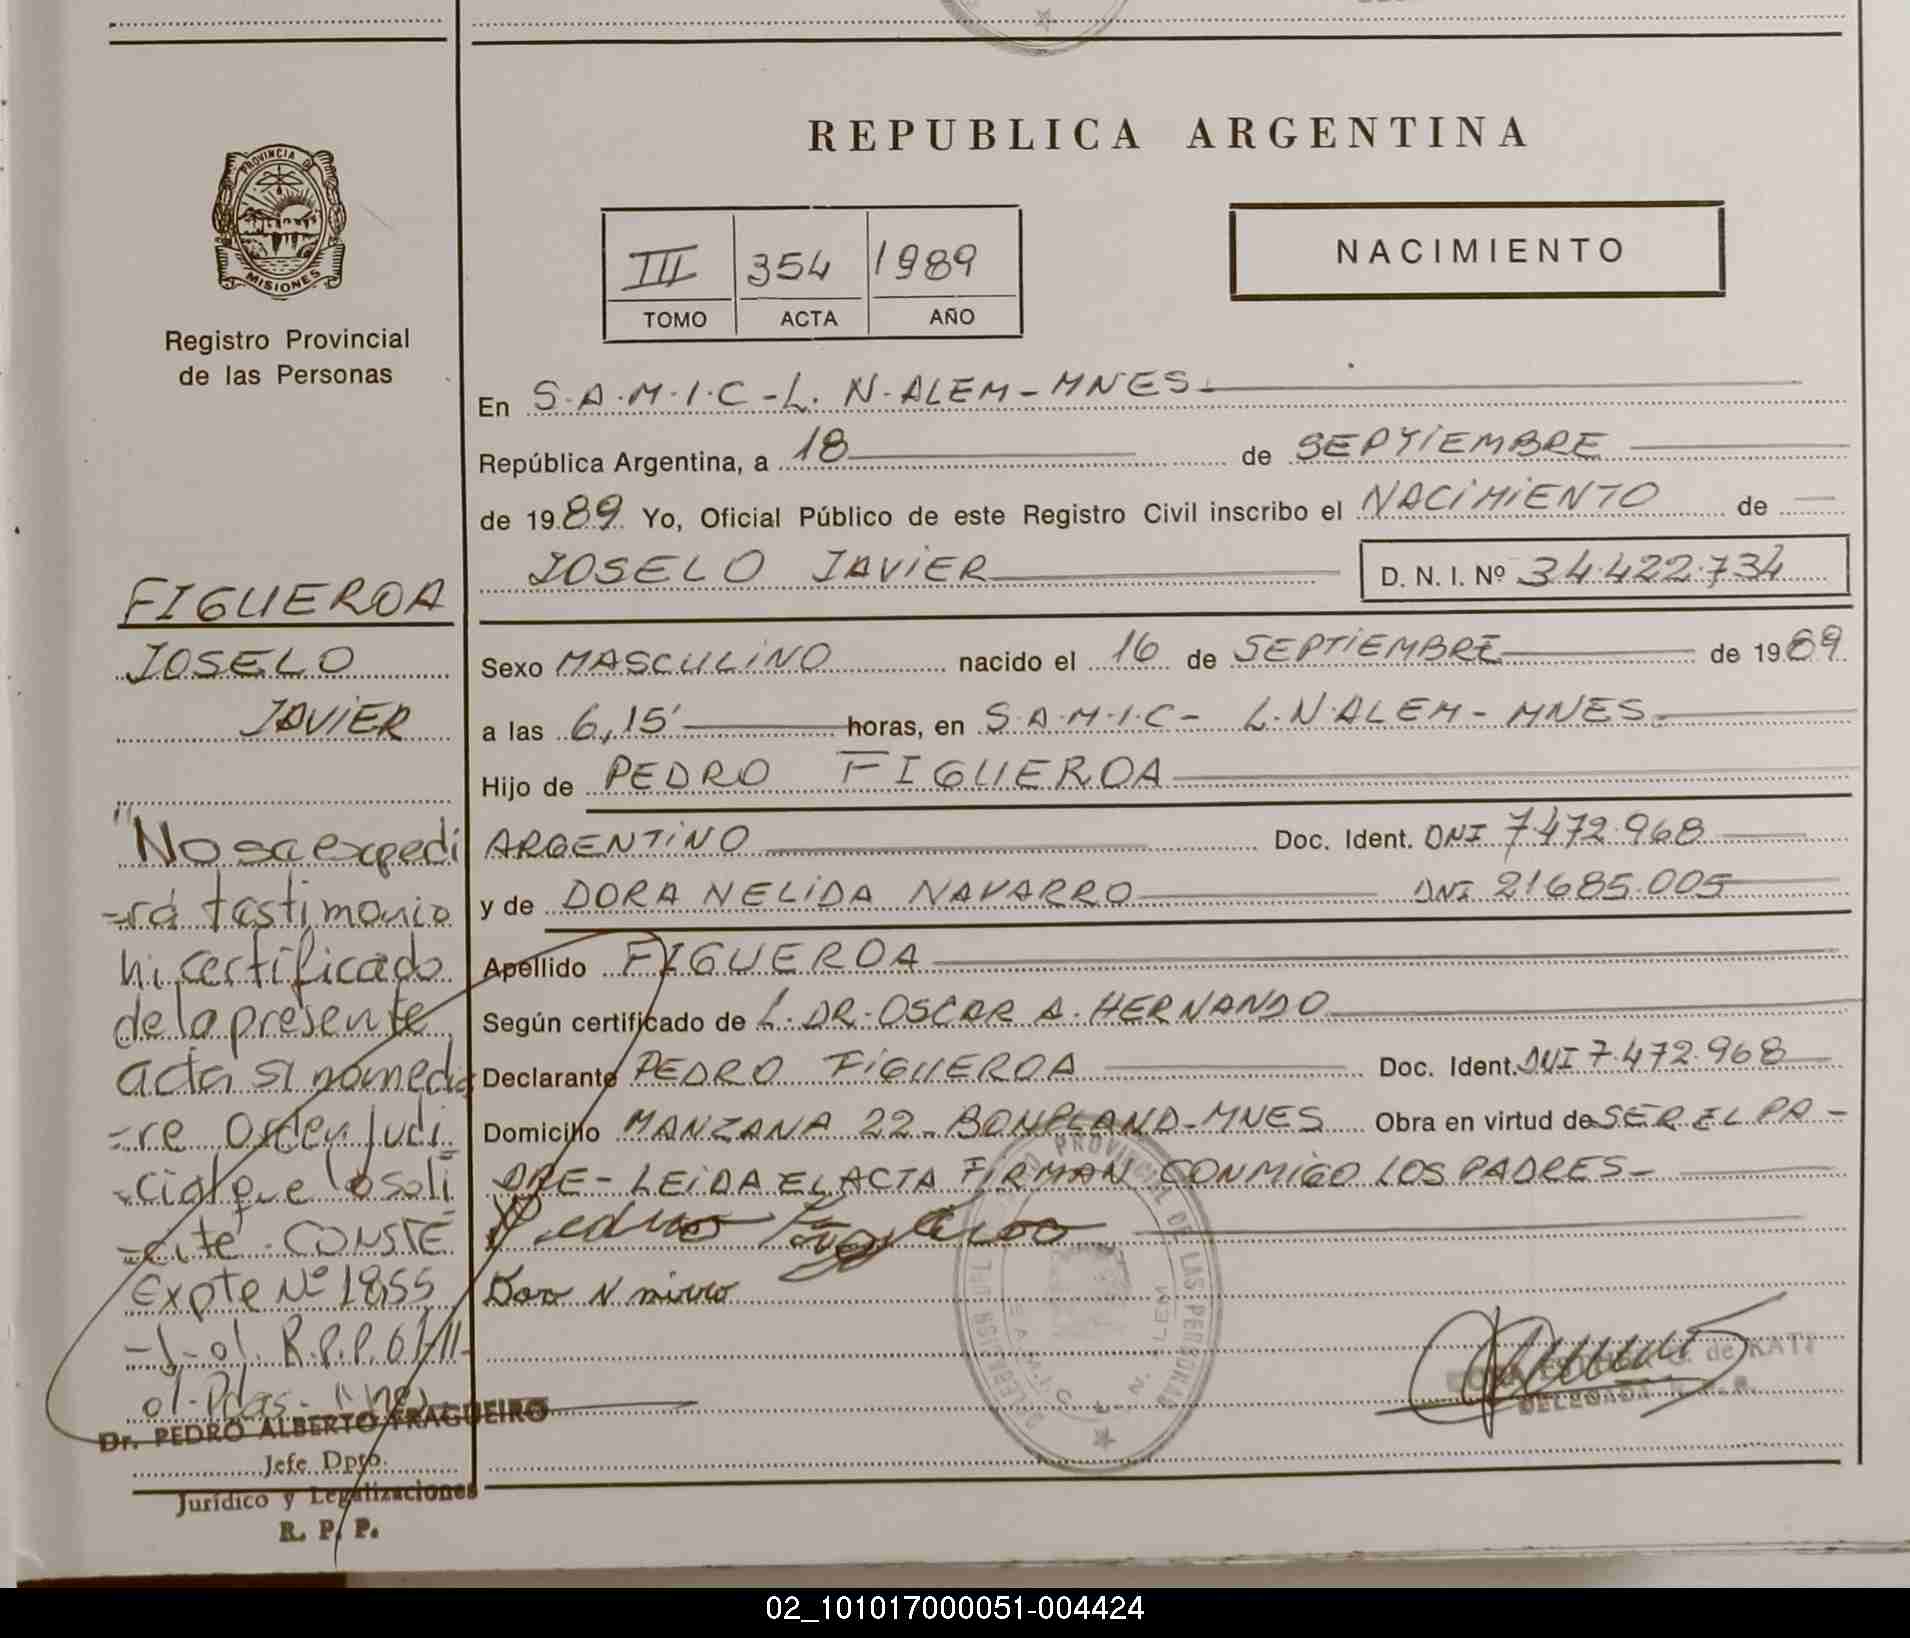 REPUBLICA ARGENTINA
PROVINCIA DE
MISIONES
Registro Provincial
de las Personas
III 354 1989
TOMO ACTA AÑO
NACIMIENTO
En S.A.M.I.C - L. N. ALEM - MNES.
República Argentina, a 18 de SEPTIEMBRE
de 1989 Yo, Oficial Público de este Registro Civil inscribo el NACIMIENTO de
JOSELO JAVIER D. N. I. Nº 34.422.734
Sexo MASCULINO nacido el 16 de SEPTIEMBRE de 1989
a las 6,15' horas, en S.A.M.I.C - L.N.ALEM - MNES.
Hijo de PEDRO FIGUEROA
ARGENTINO Doc. Ident. DNI 7.472.968
y de DORA NELIDA NAVARRO DNI 21.685.005
Apellido FIGUEROA
Según certificado de L. DR. OSCAR A. HERNANDO
Declarante PEDRO FIGUEROA Doc. Ident. DNI 7.472.968
Domicilio MANZANA 22 - BONPLAND - MNES Obra en virtud de SER EL PA-
DRE - LEIDA EL ACTA FIRMAN CONMIGO LOS PADRES -
Pedro Figueroa
FIGUEROA
JOSELO
JAVIER
"No se expedi
-rá testimonio
ni certificado
de la presente
acta si no media
-re Orden Judi
-cial que lo soli
-cite. CONSTE
Expte Nº 1855
Dr. PEDRO ALBERTO FRAGUEIRO
Jefe Dpto.
Jurídico y Legalizaciones
R. P. P.
PROVINCIAL DE LAS PERSONAS
S.A.M.I.C. L. N. ALEM
de KATI
DELEGADA
02_101017000051-004424